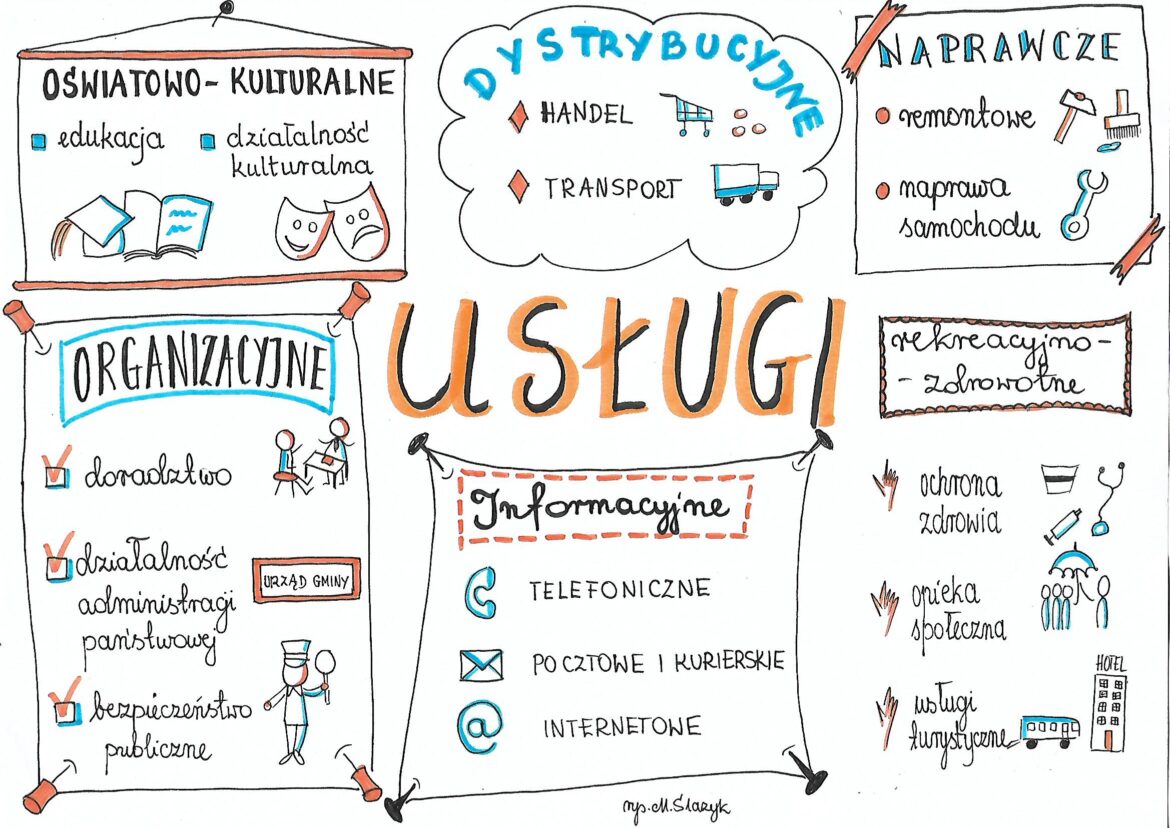 OŚWIATOWO - KULTURALNE
edukacja
działalność
kulturalna
DYSTRYBUCYJNE
HANDEL
TRANSPORT
NAPRAWCZE
remontowe
naprawa
samochodu
USŁUGI
ORGANIZACYJNE
doradztwo
działalność
administragi
państwowej
URZĄD GMINY
bezpieczeństwo
publiczne
Informacyjne
TELEFONICZNE
POCZTOWE I KURIERSKIE
@ INTERNETOWE
rekreacyjno -
- zdrowotne
ochrona
zdrowia
opieka
społeczna
HOTEL
usługi
turystyczne
rys. M. Ślazyk